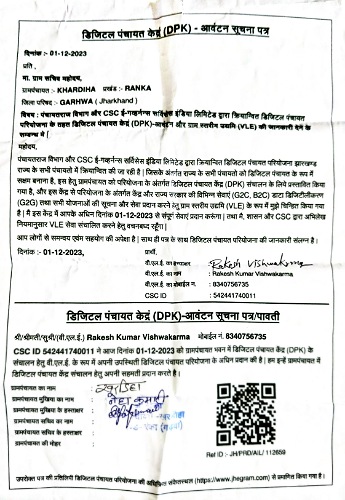 डिजिटल पंचायत केंद्र (DPK) - आवंटन सूचना पत्र
दिनांक :- 01-12-2023
प्रति ,
मा. ग्राम सचिव महोदय,
ग्रामपंचायत :- KHARDIHA प्रखंड :- RANKA
जिला परिषद :- GARHWA ( Jharkhand )
विषय : पंचायतराज विभाग और CSC ई-गव्हर्नन्स सर्विसेस इंडिया लिमिटेड द्वारा क्रियान्वित डिजिटल पंचायत
परियोजना के तहत डिजिटल पंचायत केंद्र (DPK)-आवंटन और ग्राम स्तरीय उद्यमि (VLE) की जानकारी देने के
सम्बन्ध मे |
महोदय,
पंचायतराज विभाग और CSC ई-गव्हर्नन्स सर्विसेस इंडिया लिमिटेड द्वारा क्रियान्वित डिजिटल पंचायत परियोजना झारखण्ड
राज्य के सभी पंचायतो में क्रियान्वित की जा रही है | जिसके अंतर्गत राज्य के सभी पंचायतो को डिजिटल पंचायत के रूप में
सक्षम बनाना है, इस हेतु ग्रामपंचायत को परियोजना के अंतर्गत डिजिटल पंचायत केंद्र (DPK) संचालन के लिये प्रस्तावित किया
गया है, और इस केंद्र से परियोजना के अंतर्गत केंद्र और राज्य सरकार की विभिन्न सेवाएं (G2C, B2C) डाटा डिजीटलीकरण
(G2G) तथा सभी योजनाओं की सूचना और सेवा प्रदान करने हेतु ग्राम स्तरीय उद्यमि (VLE) के रूप में मुझे चिन्हित किया गया
है | मैं इस केंद्र में आपके अधिन दिनांक 01-12-2023 से संपूर्ण सेवाएं प्रदान करूंगा | तथा मै, शासन और CSC द्वारा अभिलेख
नियमानुसार VLE सेवा संचालित करने हेतु वचनबद्ध रहूँगा |
आप लोगों से समन्वय एवंम सहयोग की अपेक्षा है | साथ ही पत्र के साथ डिजिटल पंचायत परियोजना की जानकारी संलग्न है |
दिनांक :- 01-12-2023, प्रार्थी,
वी.एल.ई. का हस्ताक्षर : Rakesh Vishwakarma
वी.एल.ई. का नाम : Rakesh Kumar Vishwakarma
वी.एल.ई. का मोबाईल नं. : 8340756735
CSC ID : 542441740011
डिजिटल पंचायत केंद्र (DPK)-आवंटन सूचना पत्र/पावती
श्री/श्रीमती/सुश्री/(वी.एल.ई.) Rakesh Kumar Vishwakarma मोबाईल नं. 8340756735
CSC ID 542441740011 ने आज दिनांक 01-12-2023 को ग्रामपंचायत भवन में डिजिटल पंचायत केंद्र (DPK) के
संचालन हेतु वी.एल.ई. के रूप में अपनी उपस्थिती डिजिटल पंचायत परियोजना के अधिन प्रदान की है | हम इन्हे ग्रामपंचायत में
डिजिटल पंचायत केंद्र संचालन हेतु अपनी सहमती प्रदान करते है |
ग्रामपंचायत का नाम : खरडिहा
ग्रामपंचायत मुखिया का नाम : नेहा कुमारी
ग्रामपंचायत मुखिया के हस्ताक्षर :
ग्रामपंचायत सचिव का नाम :
ग्रामपंचायत सचिव के हस्ताक्षर :
ग्रामपंचायत की मोहर :
Ref ID :- JH/PRD/AIL/ 112659
उपरोक्त पत्र की प्रतिलिपी डिजिटल पंचायत परियोजना की अधिकृत संकेतस्थल (https://www.jhegram.com) से प्रमाणित किया गया है |